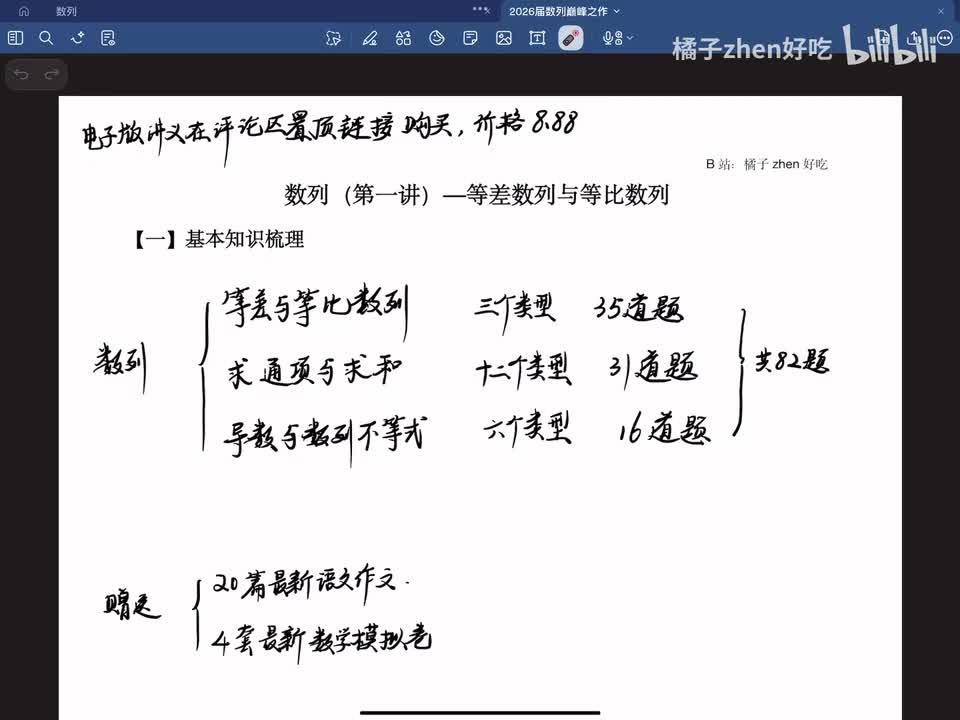 数列
2026届数列巅峰之作
橘子zhen好吃 bilibili
电子版讲义在评论区置顶链接购买，价格8.88
B 站：橘子 zhen 好吃
数列（第一讲）—等差数列与等比数列
【一】基本知识梳理
等差与等比数列 三个类型 35道题
数列 求通项与求和 十二个类型 31道题 共82题
导数与数列不等式 六个类型 16道题
20篇最新语文作文.
赠送
4套最新数学模拟卷